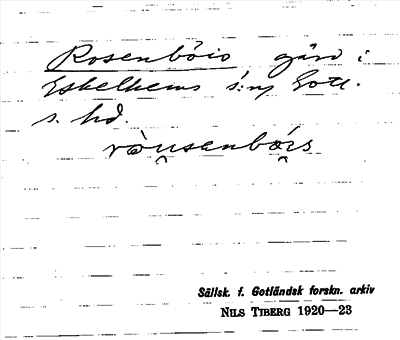 Rosenbóis gård i
Eskelhems s:n, Gotl.
s. hd.
ròu̯senbói̯s
Sällsk. f. Gotländsk forskn. arkiv
NILS TIBERG 1920—23